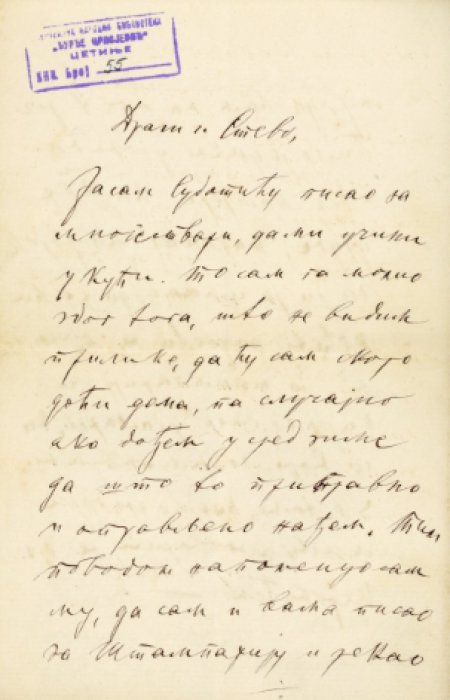 НАРОДНА БИБЛИОТЕКА
„ЂУРЂЕ ЦРНОЈЕВИЋ“
ЦЕТИЊЕ
Инв. Број 55
Драги г. Стево,
Ја сам Суботићу писао за
многе ствари, да ми учини
у кући. То сам га молио
због тога, што не видим
прилике, да ћу сам скоро
доћи дома, па случајно
ако дођем усред зиме
да што то приправно
и оправљено нађем. Тим
поводом напоменуо сам
му, да сам и вама писао
за Штампарију и рекао